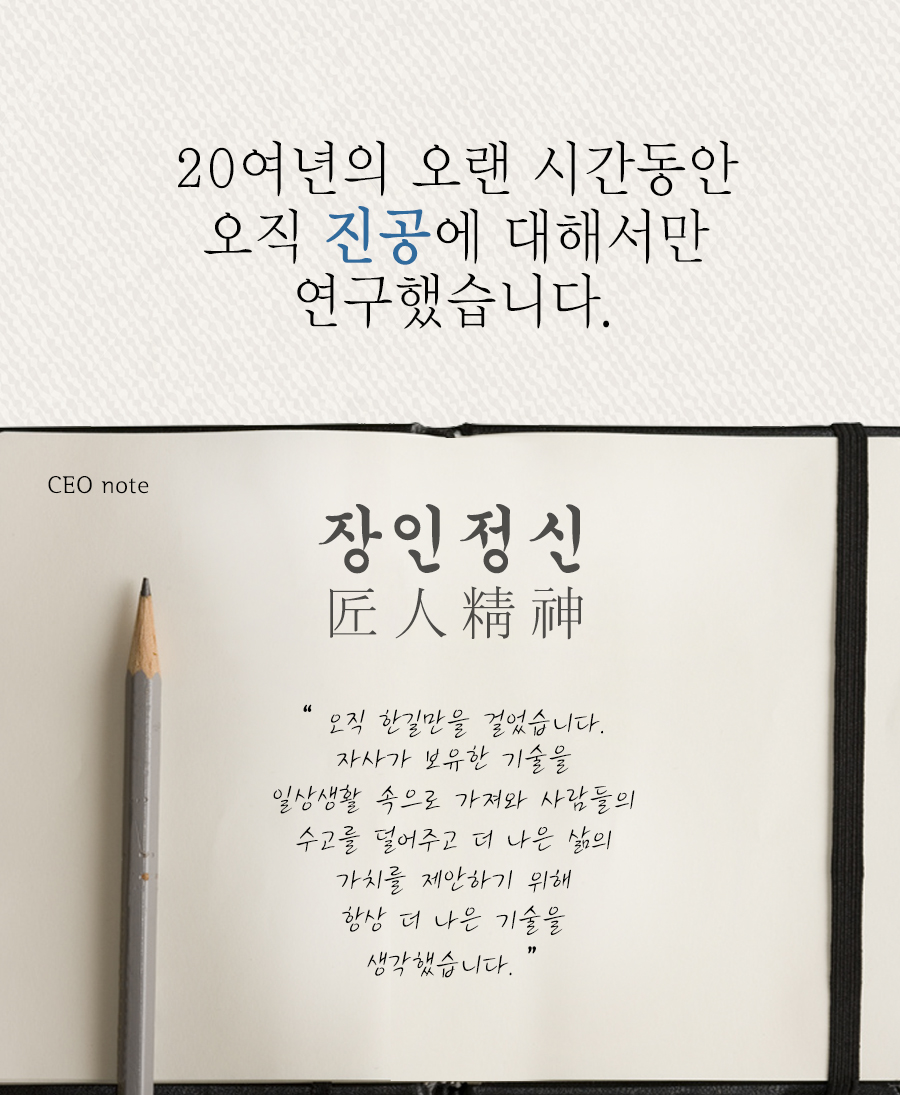 20여년의 오랜 시간동안
오직 진공에 대해서만
연구했습니다.
CEO note
장인정신
匠人精神
“ 오직 한길만을 걸었습니다.
자사가 보유한 기술을
일상생활 속으로 가져와 사람들의
수고를 덜어주고 더 나은 삶의
가치를 제안하기 위해
항상 더 나은 기술을
생각했습니다. ”